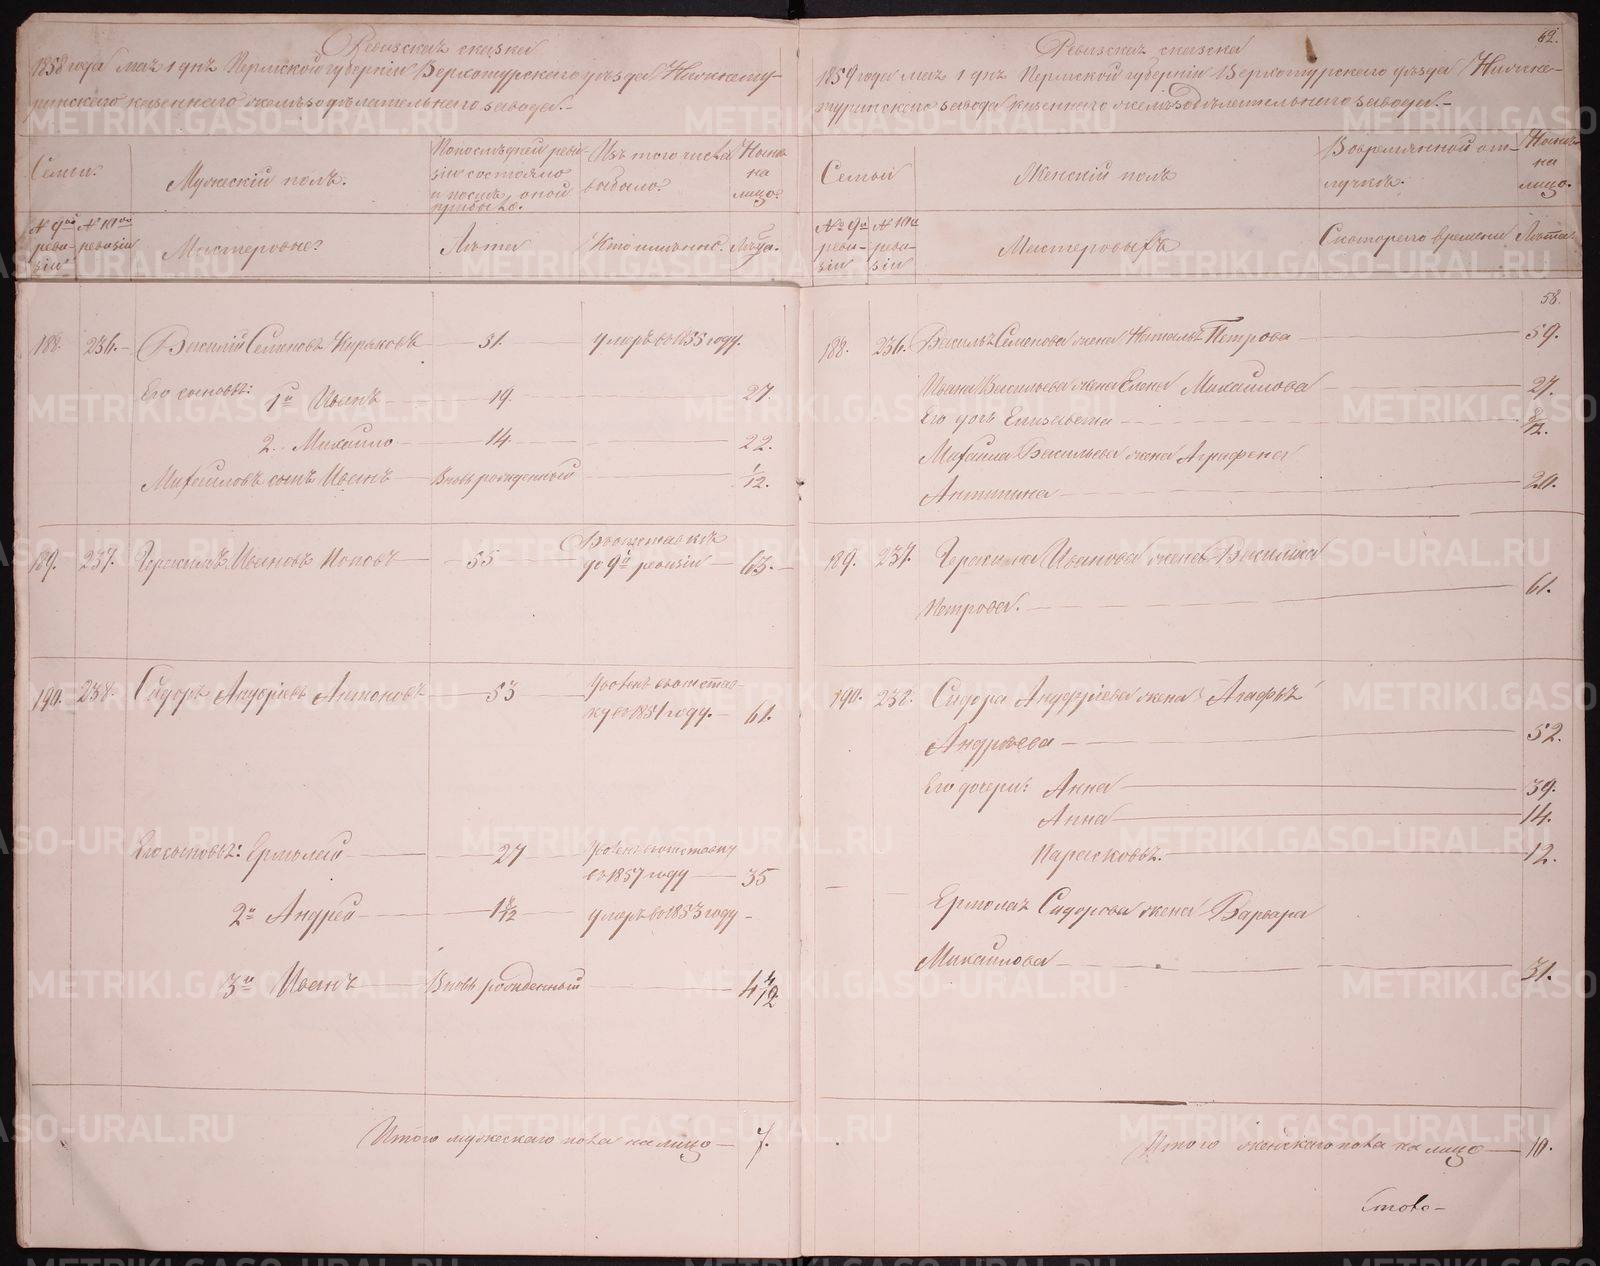 Ревизская сказка
1858 года мая 1 дня Пермской губернии Верхотурского уезда Нижнету-
ринскаго казеннаго железоделательнаго завода.-
Семьи.
Мужеский полъ.
По последней реви-
зіи состояло
и после оной
прибыло.
Изъ того числа
выбыло.
Ныне
на
лицо.
№ 9ой
реви-
зіи
№ 10ой
ревизіи
Мастеровые:
Лѣта
Кто имянно.
Лѣта.
188. 236. Василій Семеновъ Кураковъ 31. умеръ въ 1855 году.
Его сыновья: 1й Иванъ 19. 27.
2. Михайло 14. 22.
Михайловъ сынъ Иванъ Вновь рожденный 1/12.
189. 237. Герасимъ Ивановъ Поповъ 55 Въ отставкѣ
до 9й ревизіи 63.
190. 238. Сидоръ Андреевъ Антоновъ 53 Уволенъ въ отстав-
ку въ 1851 году. 61.
Его сыновья: Ермолай 27 Уволенъ въ отставку
въ 1857 году 35
2й Андрей 1 8/12 умеръ въ 1853 году
3й Иванъ Вновь рожденный 4 4/12
Итого мужескаго пола на лицо 7.
62.
Ревизская сказка
1859 года мая 1 дня Пермской губерніи Верхотурского уѣзда Нижне-
туринскаго завода казеннаго железодѣлательнаго завода.-
Семьи
Женскій полъ
Во временной от-
лучкѣ.
Нынѣ
на
лицо.
№ 9й
реви-
зіи
№ 10й
реви-
зіи
Мастеровыхъ
Съ котораго времени
Лѣта
58.
188. 236. Василья Семенова жена Наталья Петрова 59.
Ивана Васильева жена Елена Михайлова 27.
Его дочь Елизавета 8/12.
Михайла Васильева жена Аграфена
Антипина 20.
189. 237. Герасима Иванова жена Василиса
Петрова. 61.
190. 238. Сидора Андреева жена Агафья
Андреева 52.
Его дочери: Анна 39.
Анна 14.
Парасковья. 12.
Ермолая Сидорова жена Варвара
Михайлова 31.
Итого женскаго пола на лицо 10.
METRIKI.GASO-URAL.RU